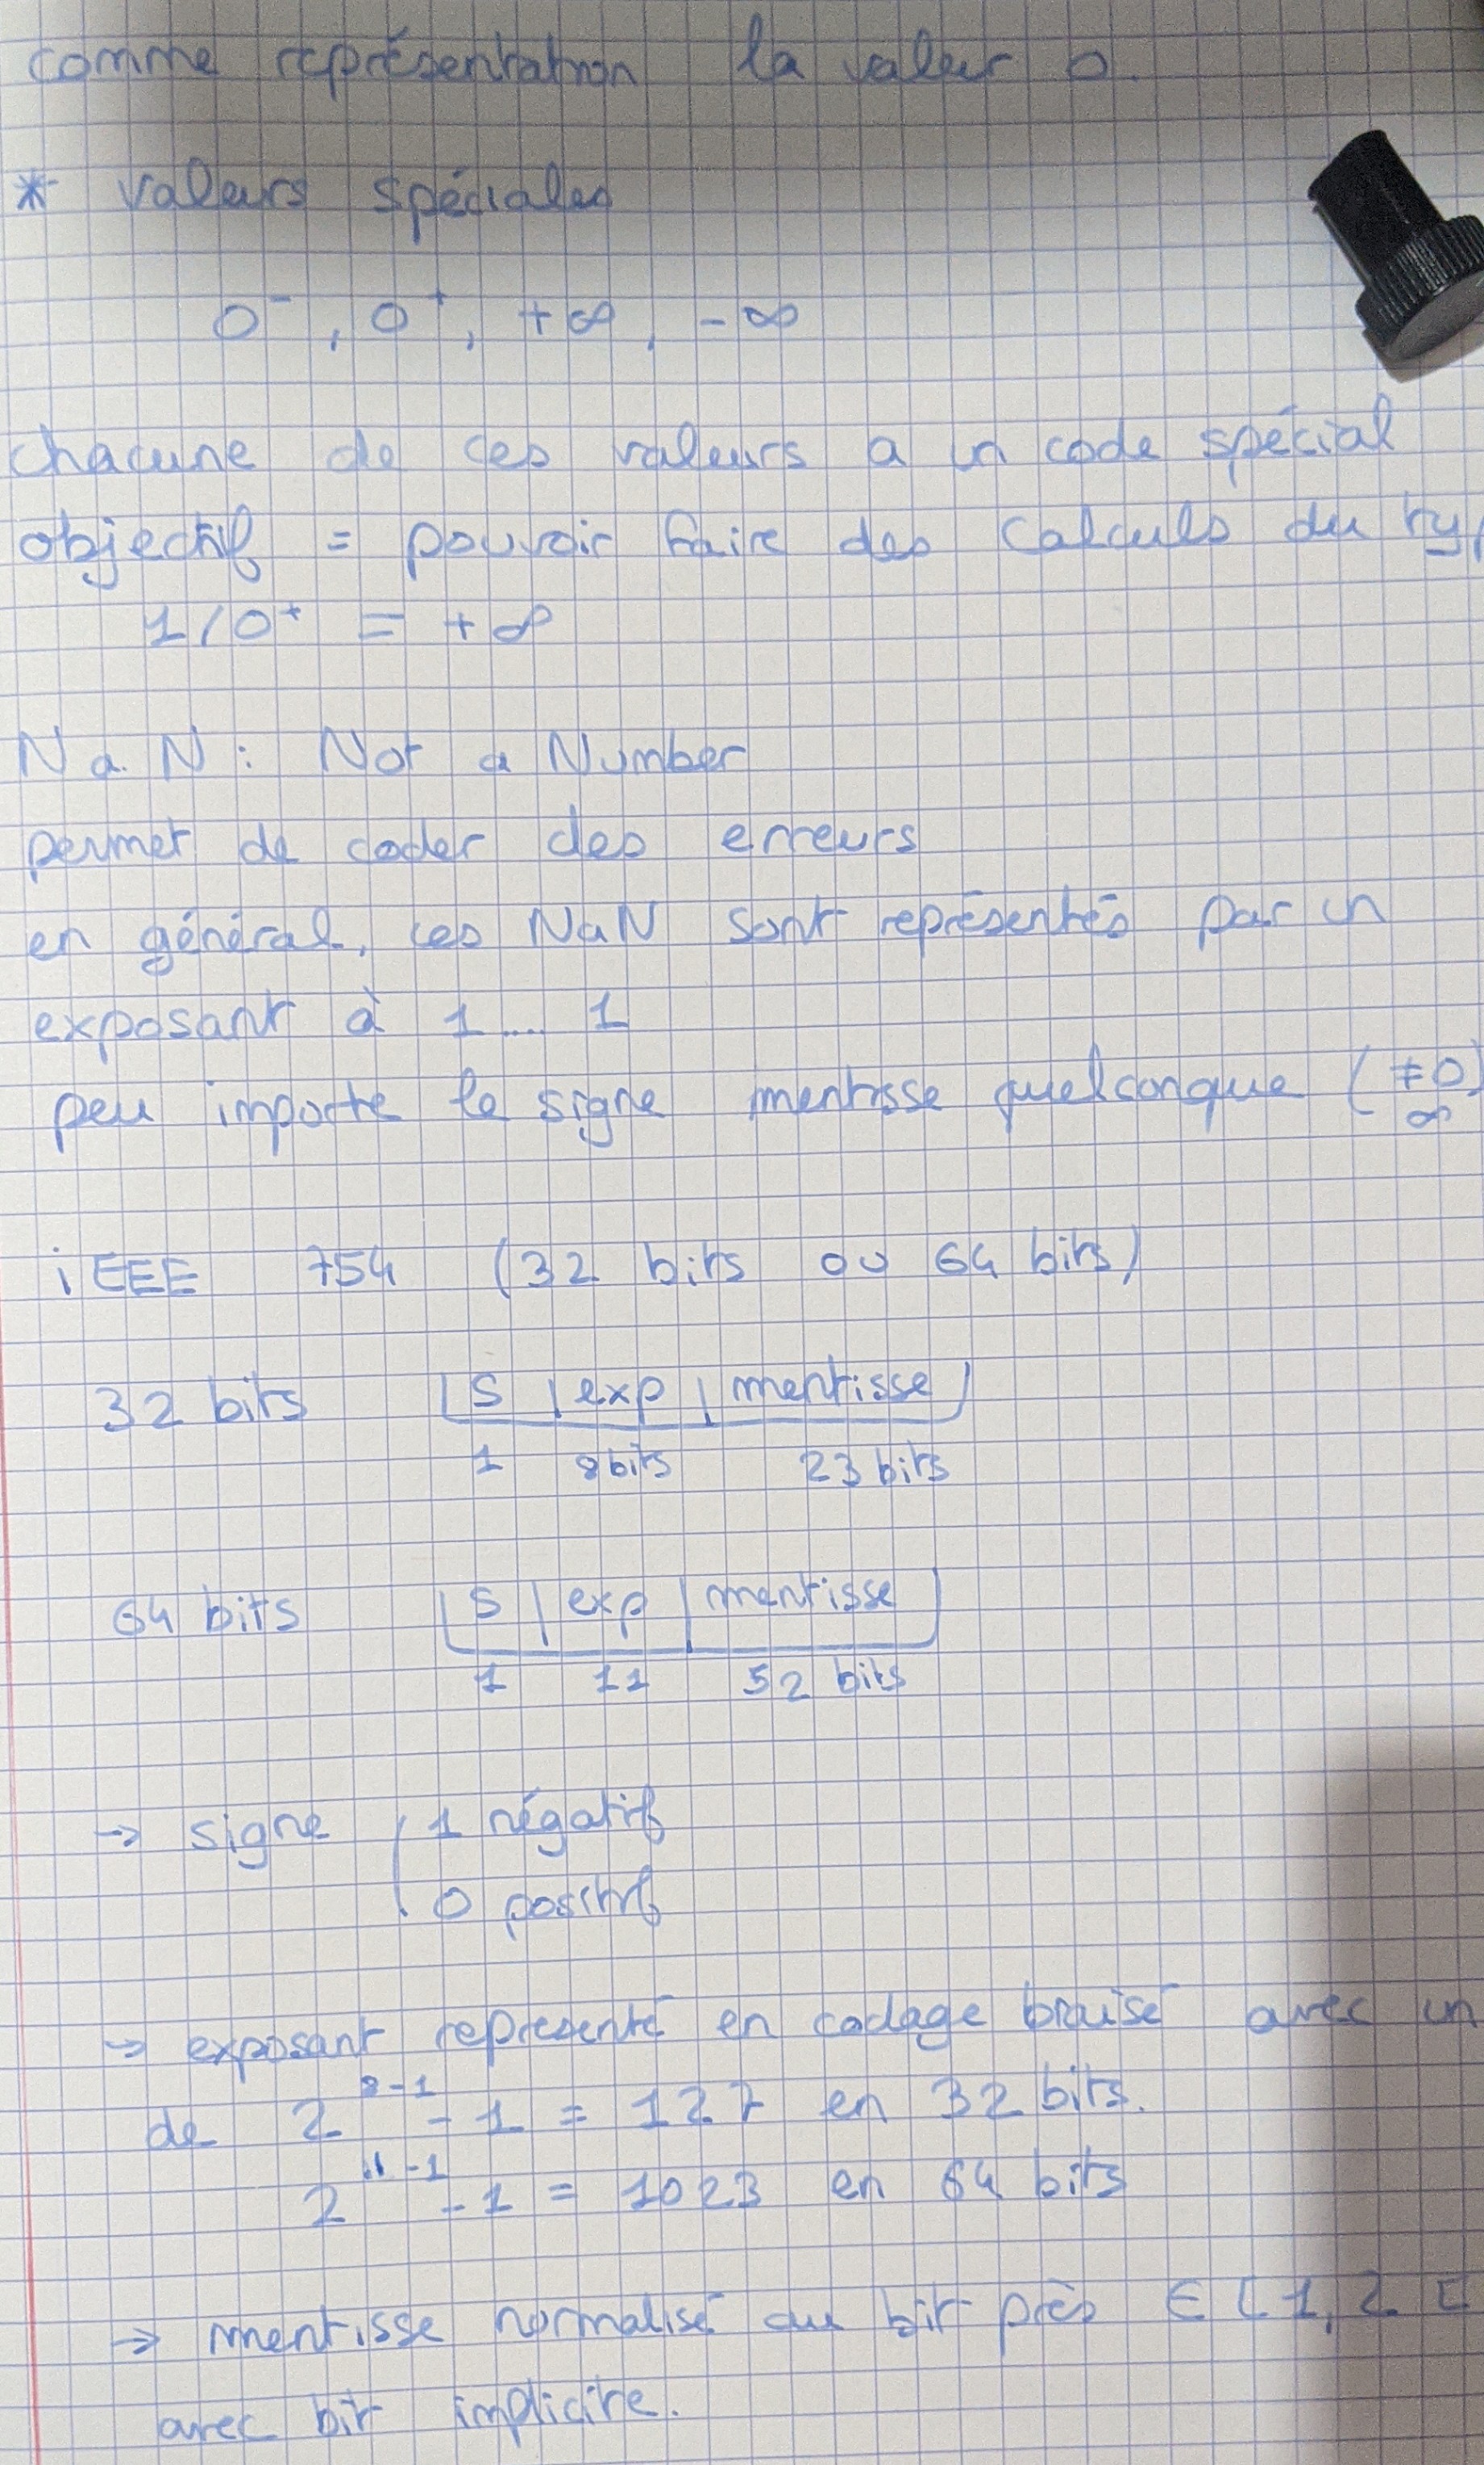 comme représentation la valeur 0.
* valeurs spéciales
0⁻, 0⁺, +∞, -∞
chacune de ces valeurs a un code spécial
objectif = pouvoir faire des calculs du ty
1/0⁺ = +∞
NaN : Not a Number
permet de coder des erreurs
en général, les NaN sont représentés par un
exposant à 1...1
peu importe le signe mentisse quelconque (≠0)
∞
iEEE 754 (32 bits ou 64 bits)
32 bits | S | exp | mentisse |
1 8bits 23 bits
64 bits | S | exp | mentisse |
1 11 52 bits
→ signe ( 1 négatif
0 positif
→ exposant représenté en codage biaisé avec un
de 2⁸⁻¹ - 1 = 127 en 32 bits.
2¹¹⁻¹ - 1 = 1023 en 64 bits
→ mentisse normalisé au bit près ∈ [1, 2 [
avec bit implicite.